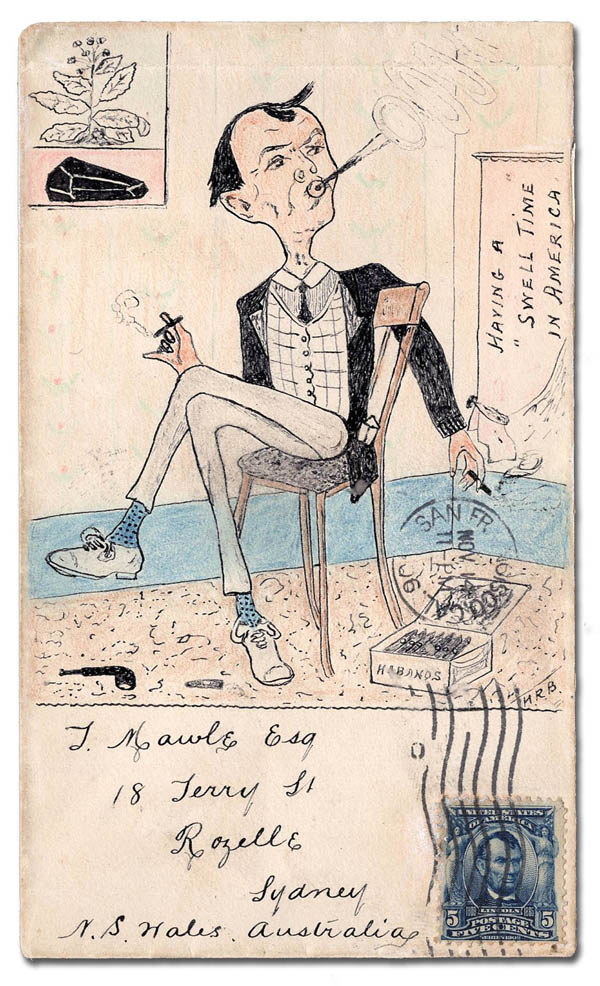 HAVING A
"SWELL TIME
IN AMERICA.
SAN FR
NOV
HABANOS
H.R.B.
T. Mawle Esq
18 Terry St
Rozelle
Sydney
N.S. Wales. Australia
UNITED STATES
OF AMERICA
LINCOLN
5 POSTAGE 5
FIVE CENTS
SERIES 1902